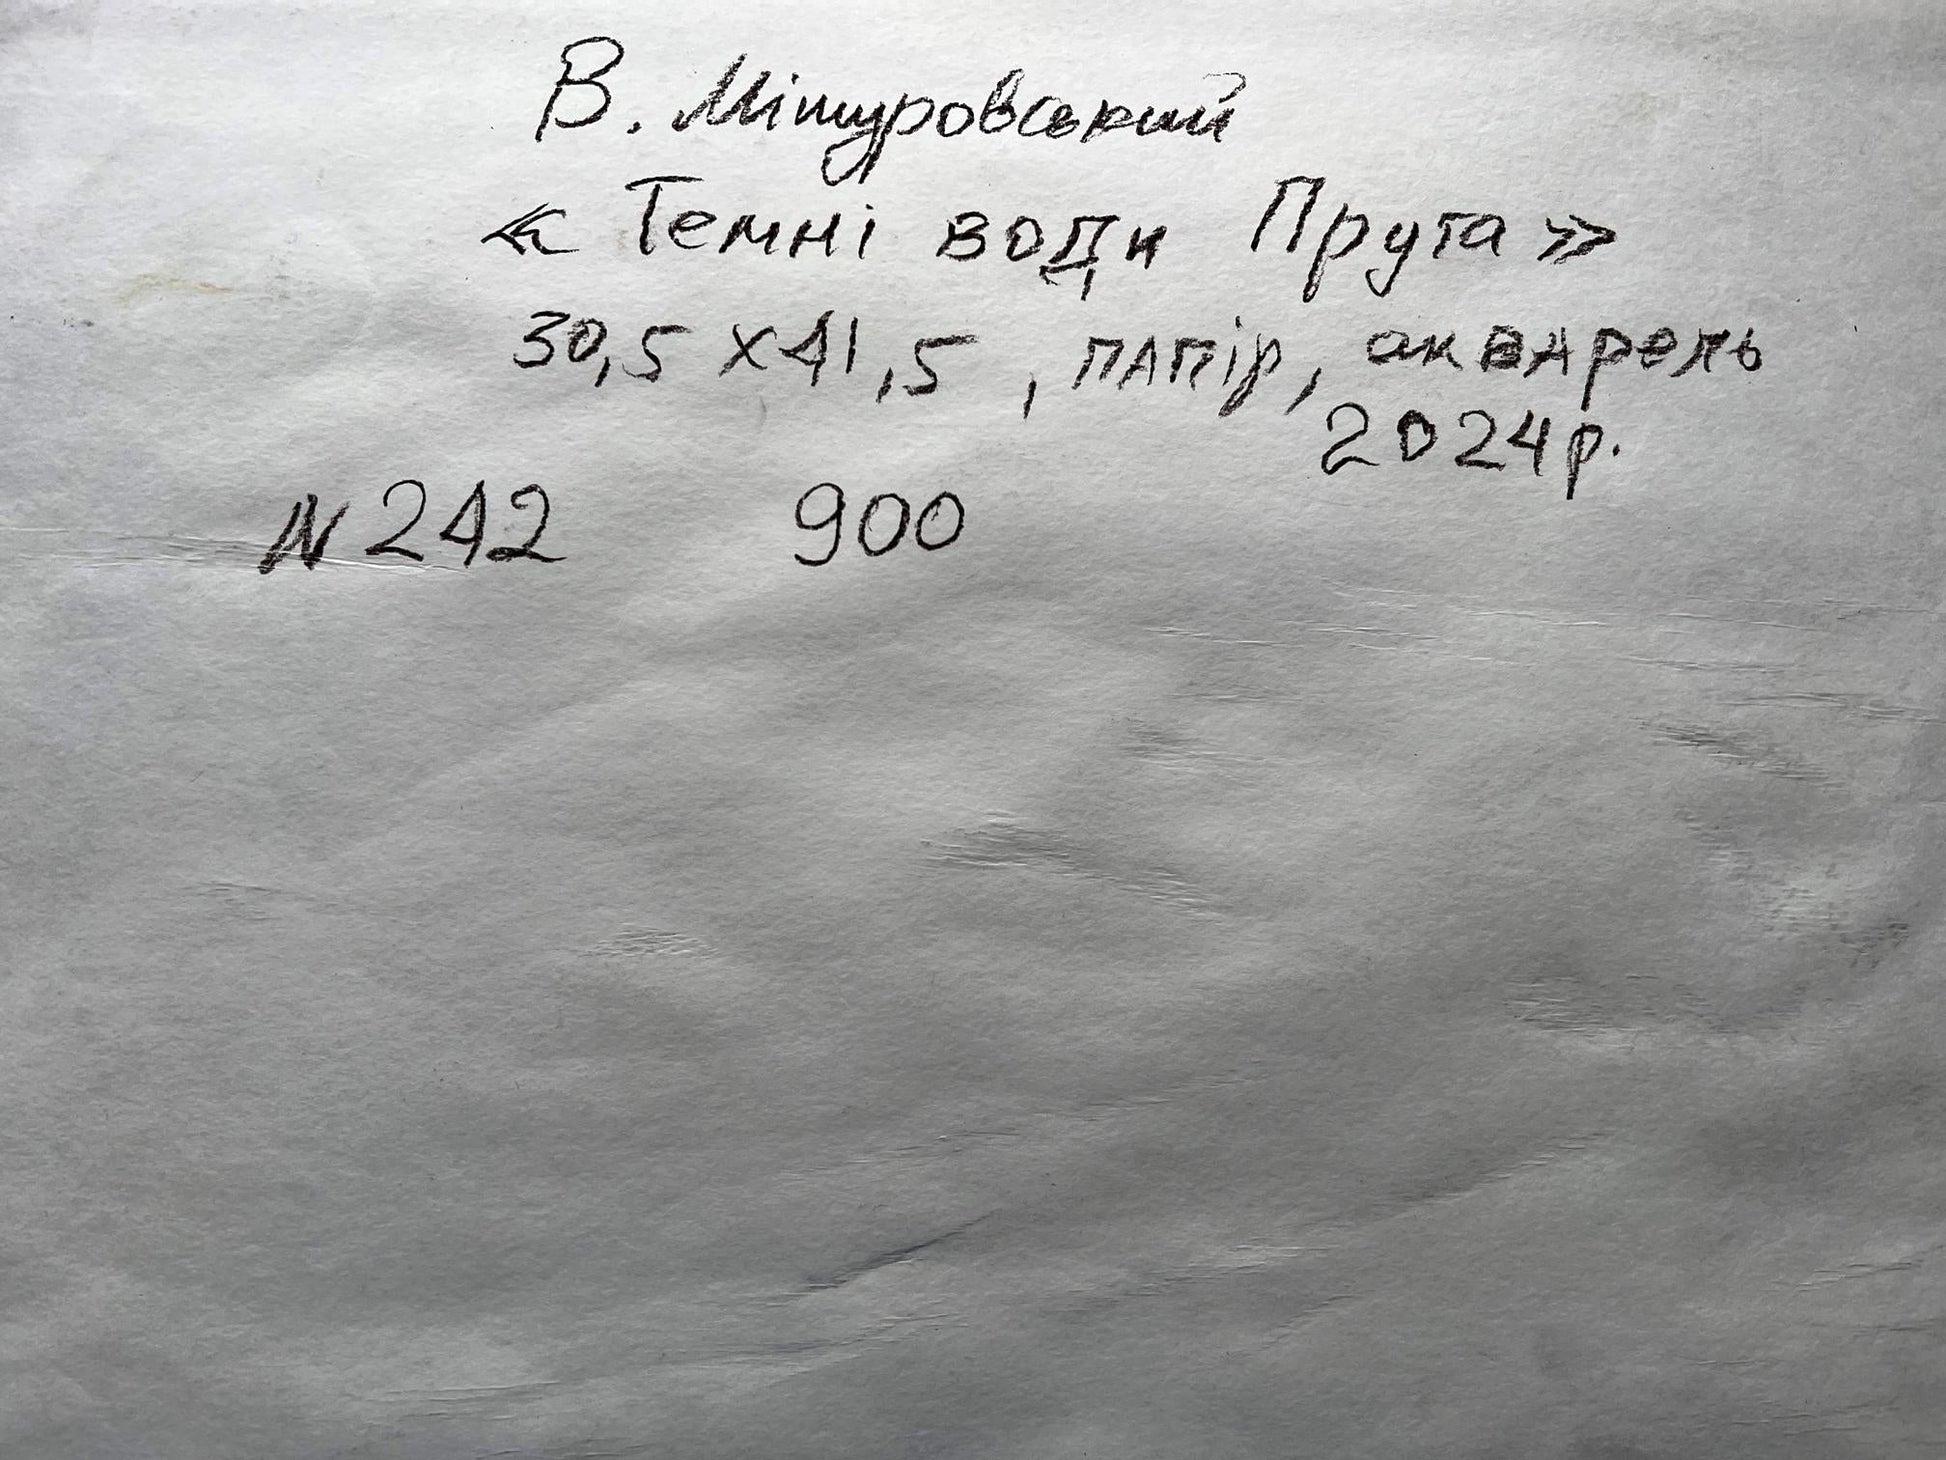 В. Мітуровський
« Темні води Прута »
30,5 х 41,5, папір, акварель
2024 р.
N 242 900